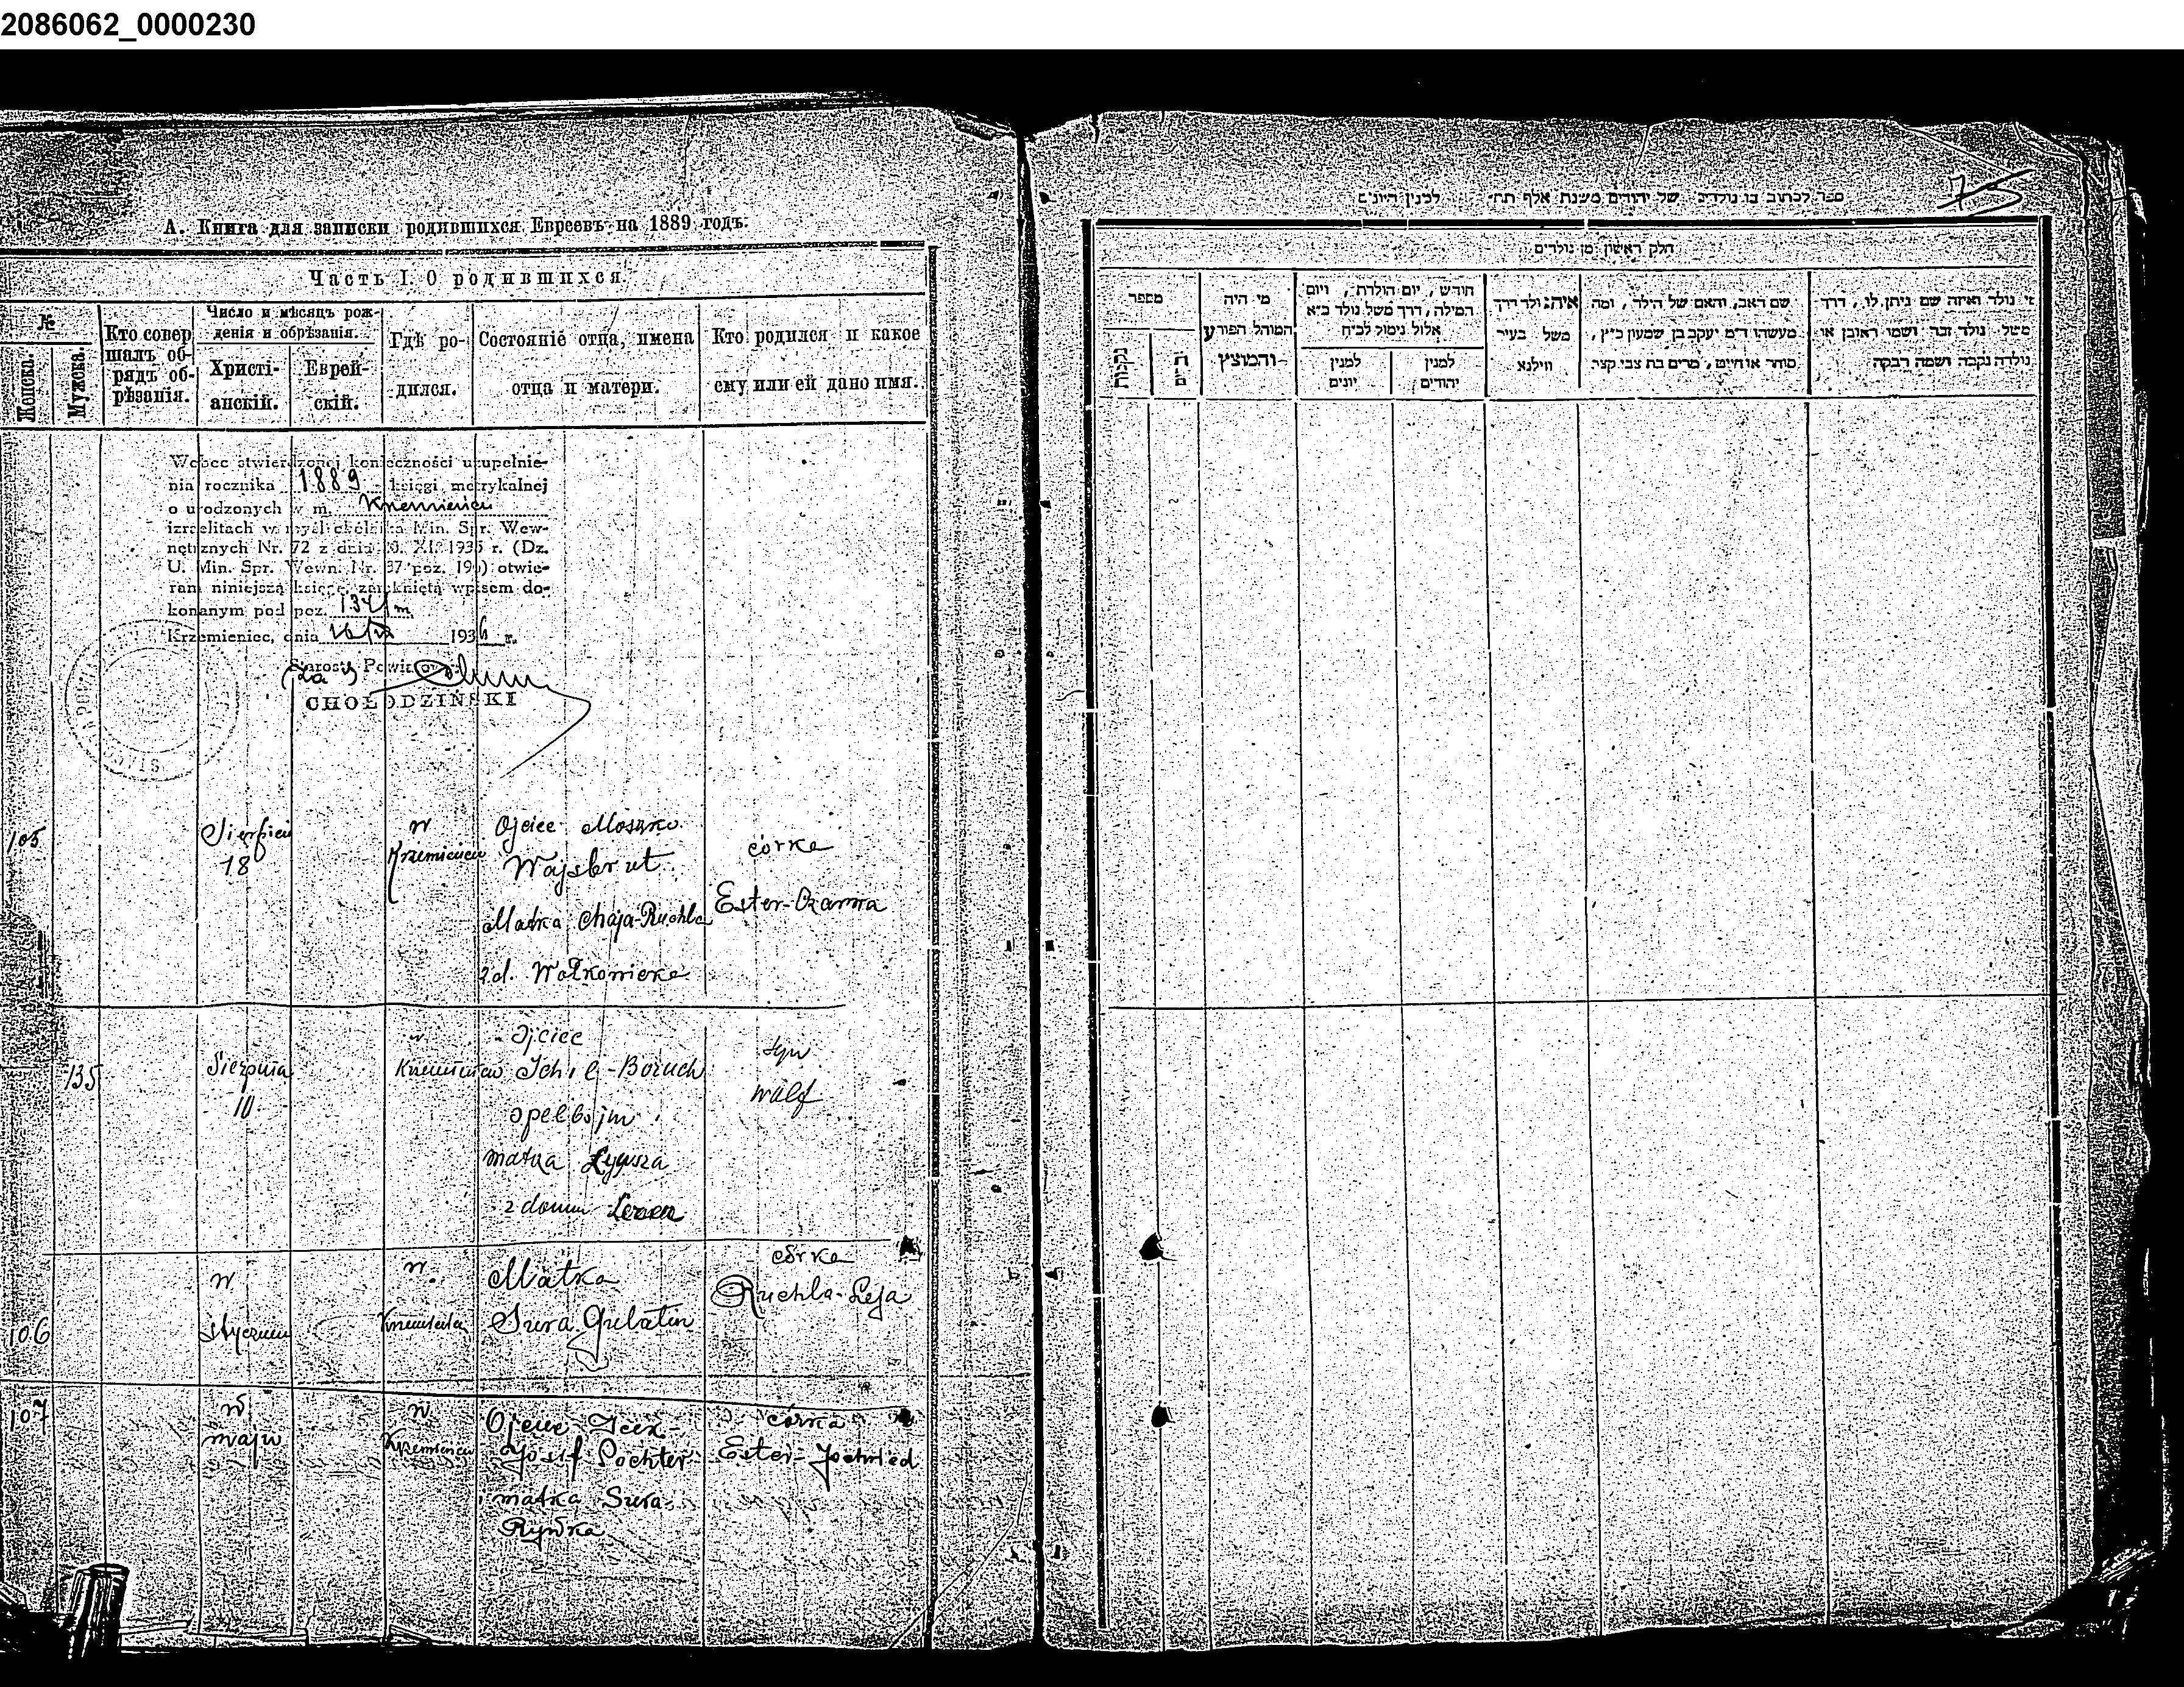 2086062_0000230
А. Книга для записки родившихся Евреевъ на 1889 годъ.
Часть I. О родившихся
№
Женска.
Мужска.
Кто совер
шалъ об-
рядъ об-
рѣзанія.
Число и мѣсяцъ рож-
денія и обрѣзанія.
Христі-
анскій.
Еврей-
скій.
Гдѣ ро-
дился.
Состояніе отца, имена
отца и матери.
Кто родился и какое
ему или ей дано имя.
Wobec stwierdzonej konieczności uzupełnie-
nia rocznika 1889 księgi metrykalnej
o urodzonych w m. Krzemieńcu
izraelitach w myśl okólnika Min. Spr. Wew-
nętrznych Nr. 72 z dnia XI. 1935 r. (Dz.
U. Min. Spr. Wewn. Nr. 37 poz. 190) otwie-
ram niniejszą księgę, zamkniętą wpisem do-
konanym pod poz. 134/m
Krzemieniec, dnia 1936 r.
za Starosta Powiatowy
CHOŁODZIŃSKI
105
Sierpień
18
w
Krzemieńcu
Ojciec Moszko
Wajsbrut
Matka Chaja-Ruchla
z d. Wołkowicka
córka
Ester-Czarna
135
Sierpnia
10
w
Krzemieńcu
Ojciec
Ichil-Boruch
Opelbojm
matka Ływsza
z domu Lerner
syn
Walf
106
w
styczniu
w
Krzemieńcu
Matka
Sura Gulatin
córka
Ruchla-Leja
107
w
maju
w
Krzemieńcu
Ojciec Icek-
Josif Pochter
matka Sura
Rywka
córka
Ester-Jochwed
75
ספר לכתוב בו נולדים של יהודים משנת אלף תת לפנין היונים
חלק ראשון מן נולדים
מספר
נקבות
זכרים
מי היה
המוהל הפורע
והמוצץ
חודש, יום הולדת, ויום
המילה, דרך משל נולד כ״א
אלול נימול לכ״ח
למנין
יונים
למנין
יהודים
איה נולד דרך
משל בעיר
ווילנא
שם האב, והאם של הילד, ומה
מעשהו ד״מ יעקב בן שמעון כ״ץ,
סוחר או חייט, מרים בת צבי קצר.
מי נולד ואיזה שם ניתן לו, דרך
משל נולד זכר ושמו ראובן או
נולדה נקבה ושמה רבקה